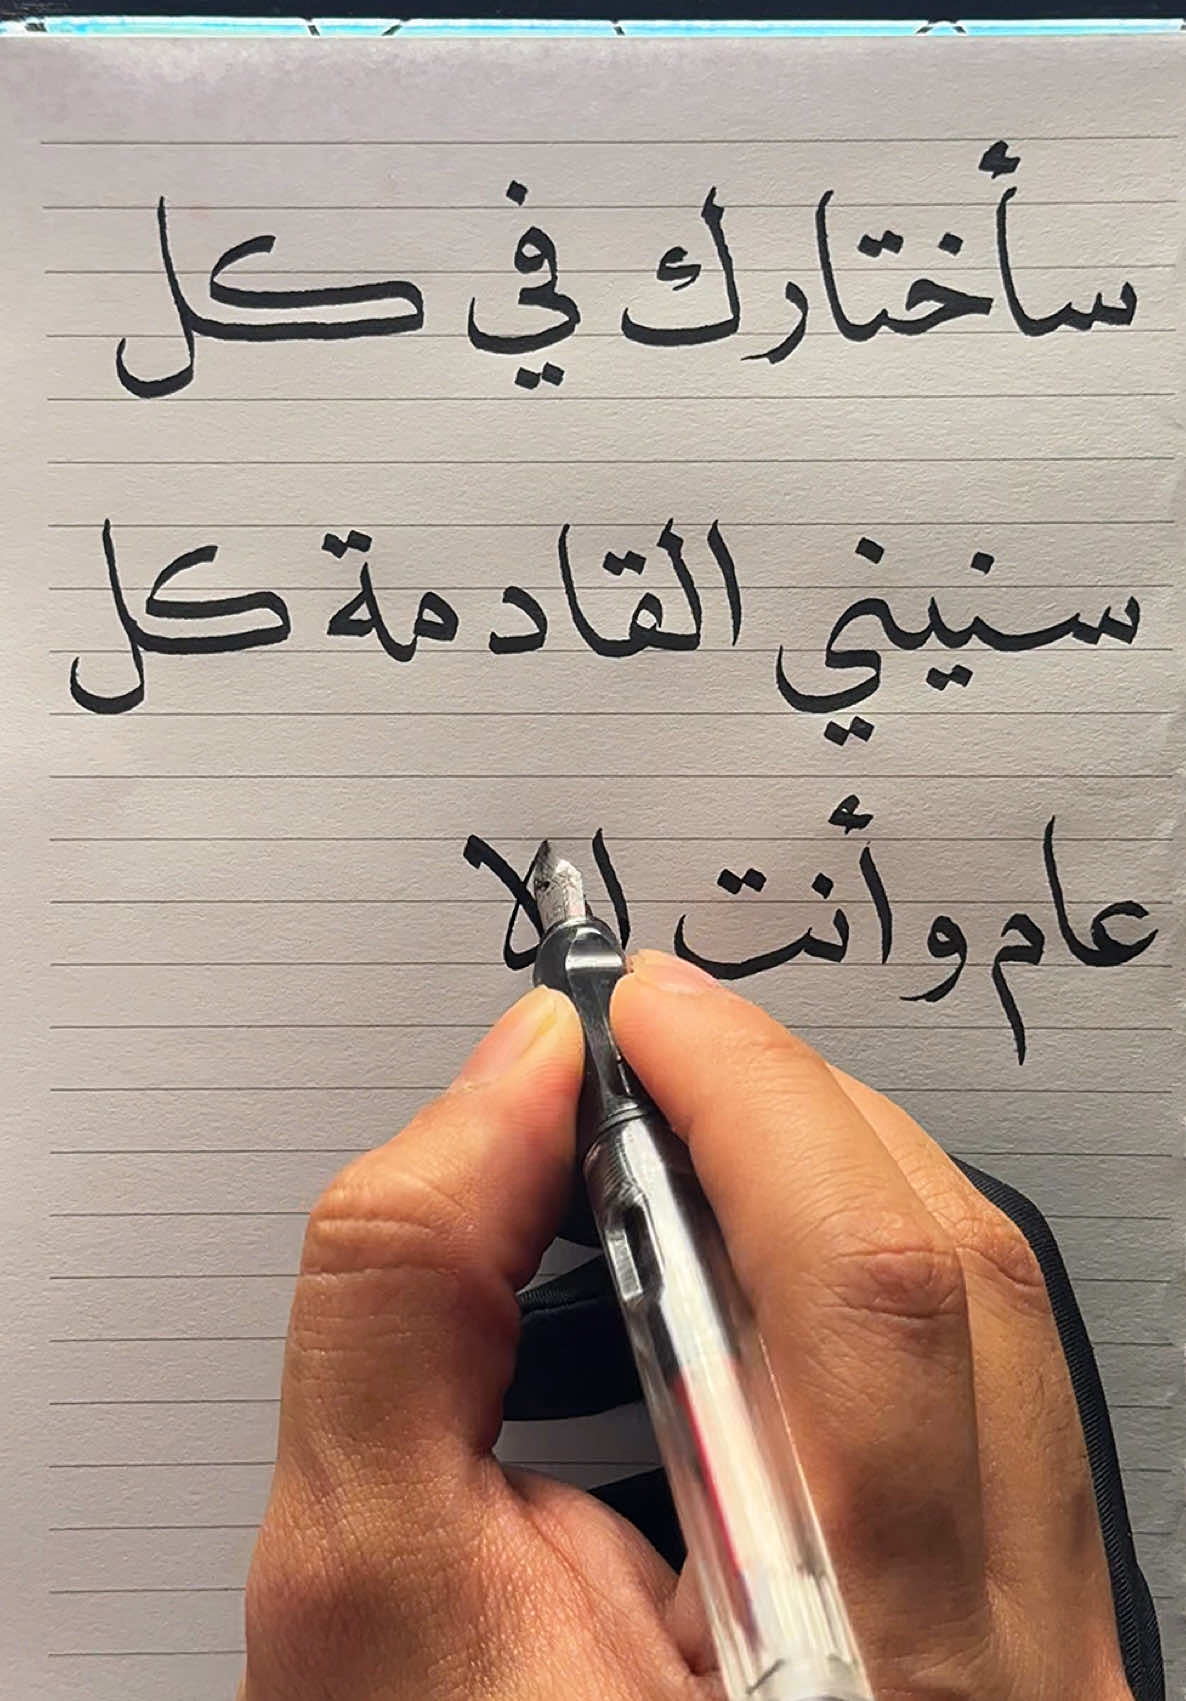 سأختارك في كل
سنيني القادمة كل
عام وأنت